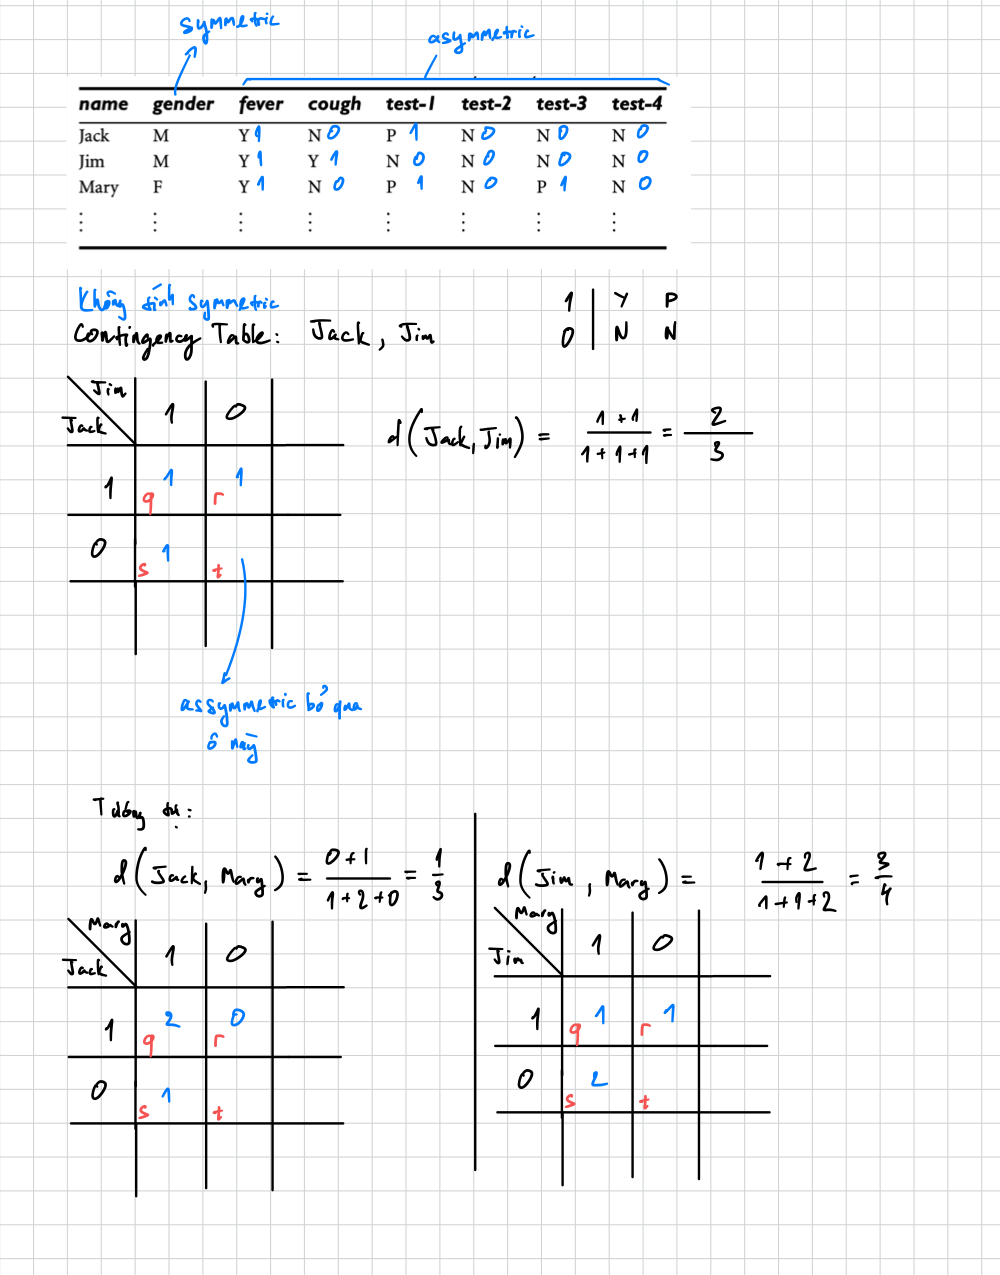 symmetric
asymmetric
name gender fever cough test-1 test-2 test-3 test-4
Jack M Y 1 N 0 P 1 N 0 N 0 N 0
Jim M Y 1 Y 1 N 0 N 0 N 0 N 0
Mary F Y 1 N 0 P 1 N 0 P 1 N 0
⋮ ⋮ ⋮ ⋮ ⋮ ⋮ ⋮ ⋮
Không tính symmetric
1 | Y P
Contingency Table: Jack, Jim
0 | N N
Jim
Jack 1 0
d(Jack, Jim) = (1+1)/(1+1+1) = 2/3
1 q 1 r 1
0 s 1 t
assymmetric bỏ qua
ô này
Tương tự:
d(Jack, Mary) = (0+1)/(1+2+0) = 1/3
d(Jim, Mary) = (1+2)/(1+1+2) = 3/4
Mary
Jack 1 0
1 q 2 r 0
0 s 1 t
Mary
Jim 1 0
1 q 1 r 1
0 s 2 t